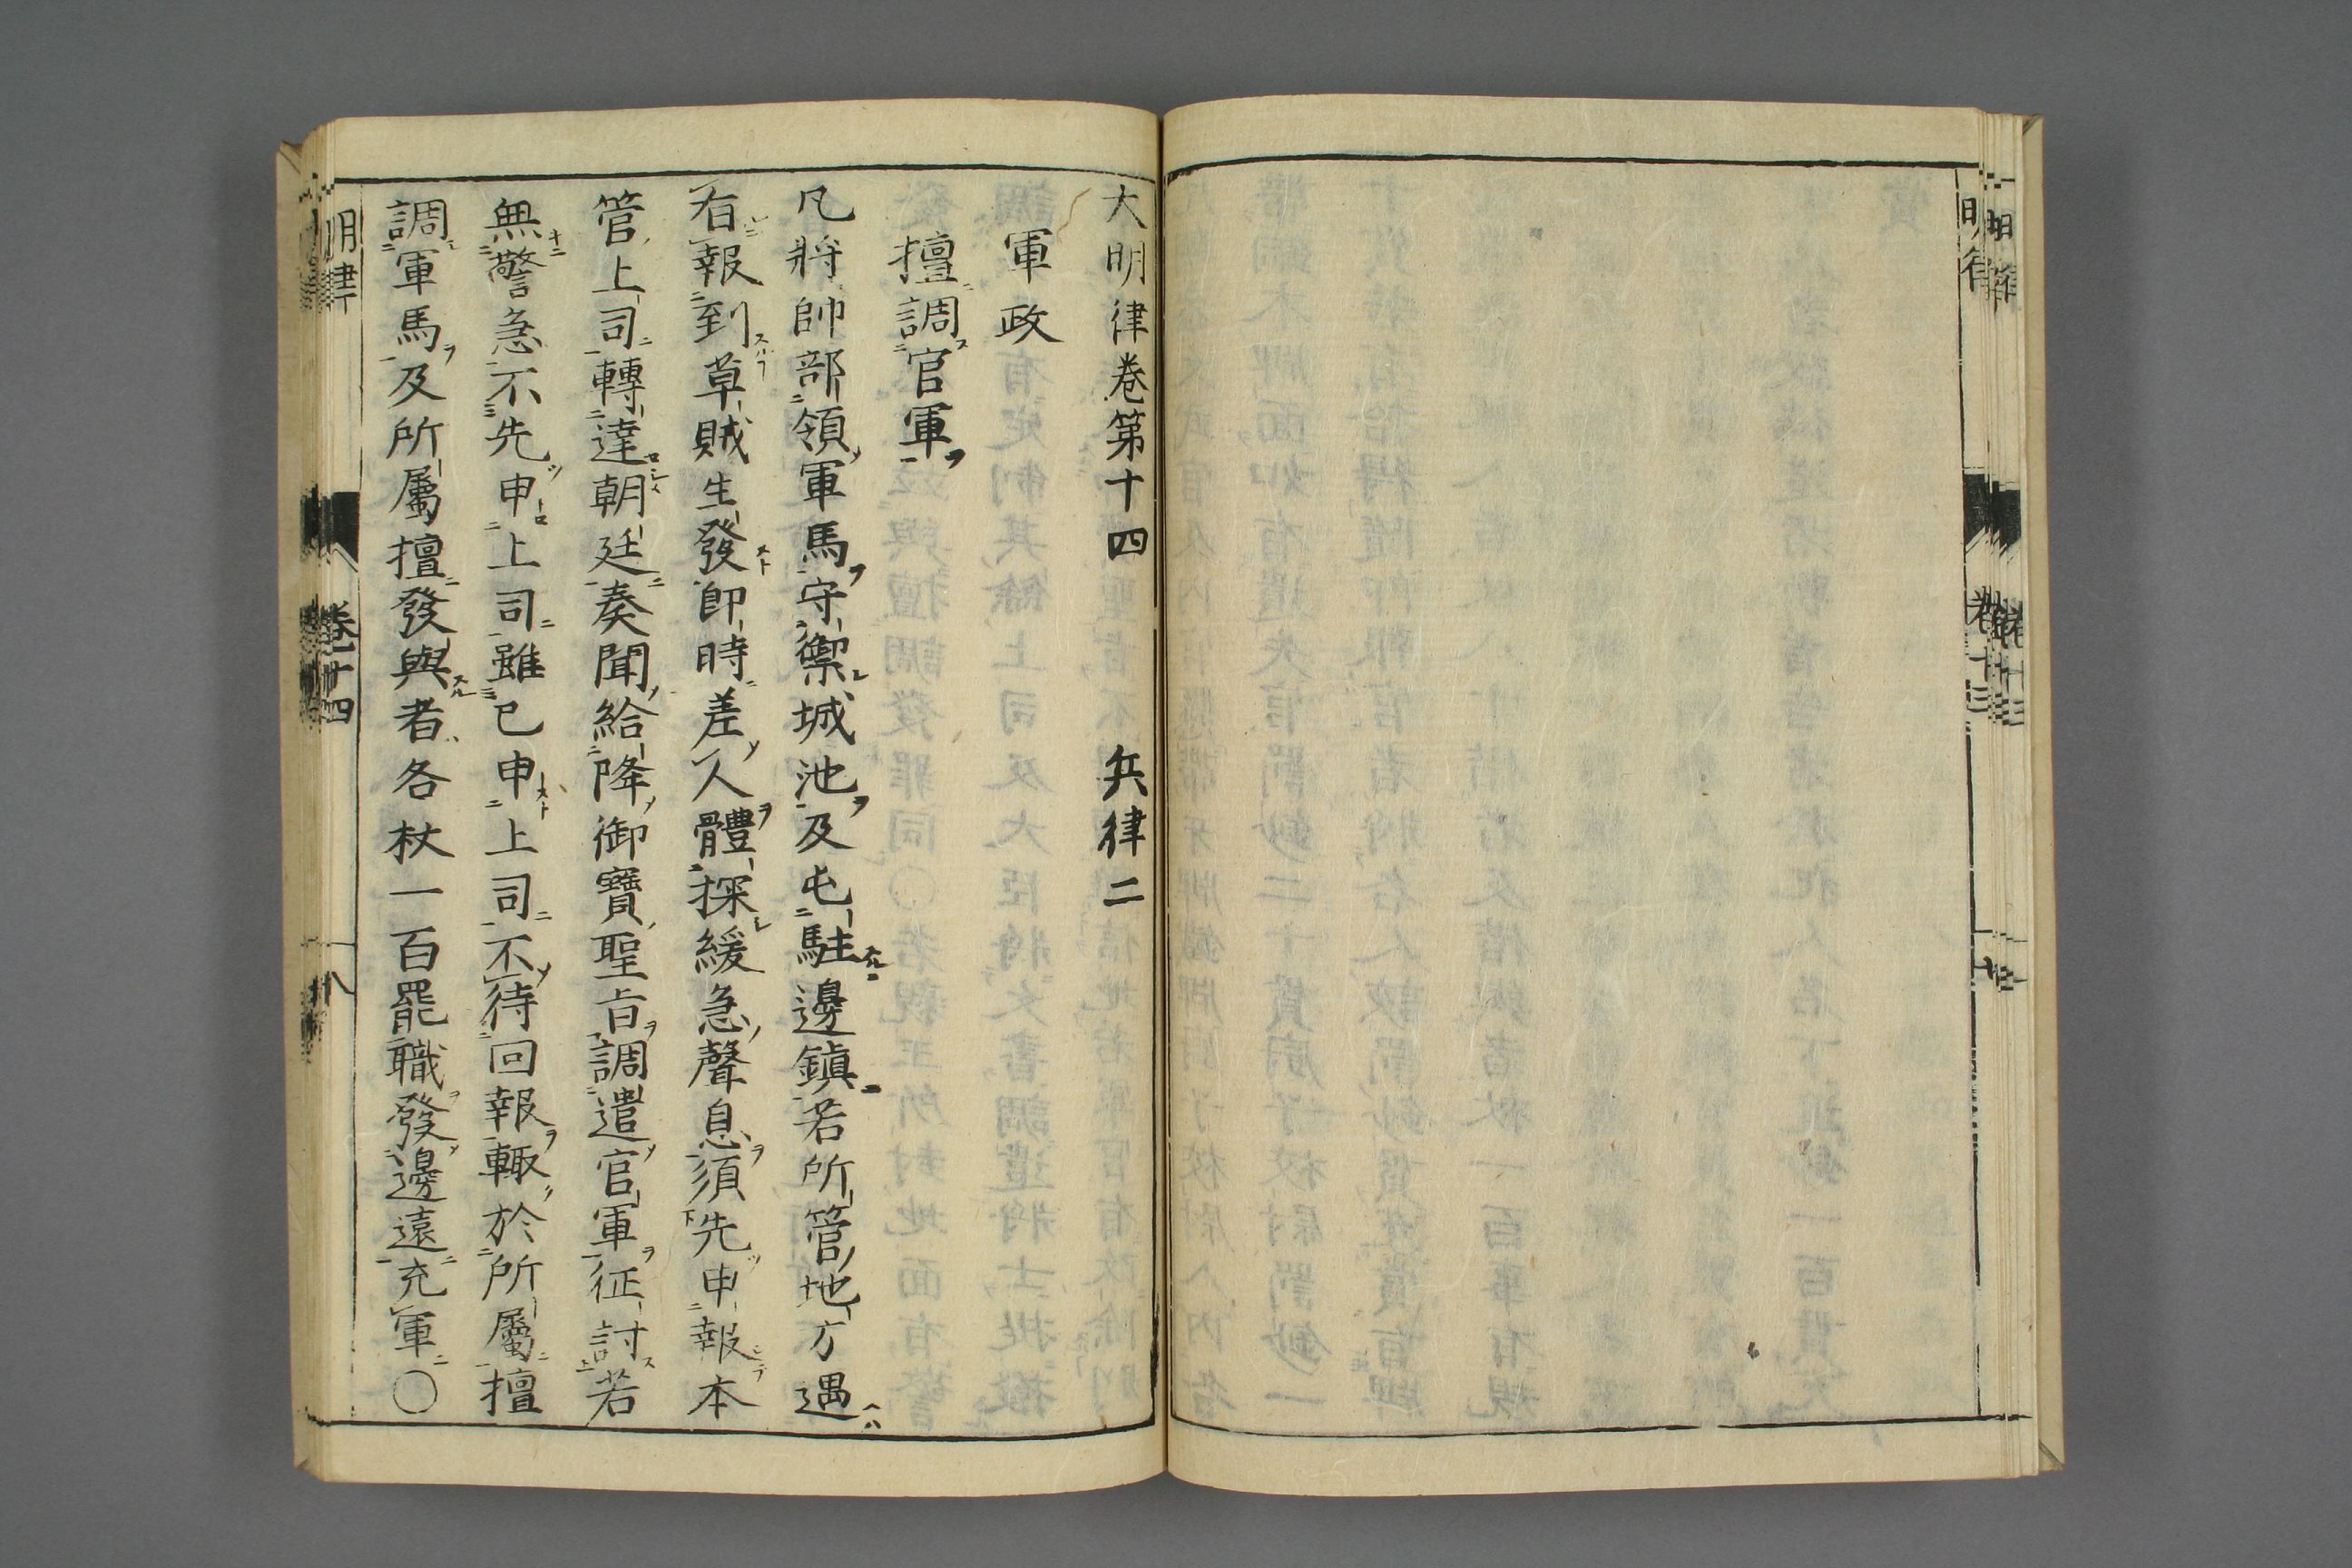 大明律卷第十四　兵律二
軍政
擅調官軍
凡將帥部領軍馬守禦城池及屯駐邊鎮若所管地方遇
有報到草賊生發即時差人體探緩急聲息須先申報本
管上司轉達朝廷奏聞給降御寶聖旨調遣官軍征討若
無警急不先申上司雖已申上司不待回報輒於所屬擅
調軍馬及所屬擅發與者各杖一百罷職發邊遠充軍○
明律
卷十四